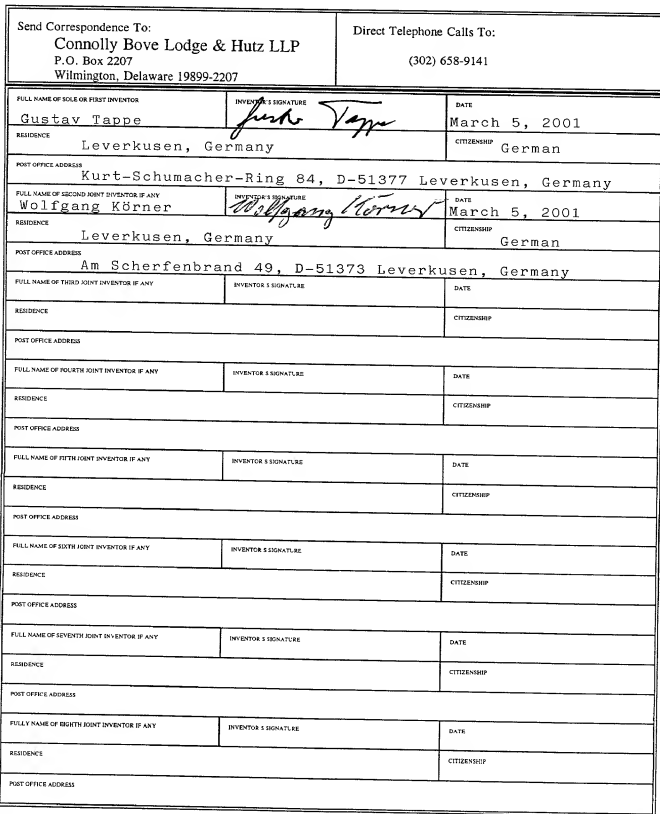 Send Correspondence To:
Connolly Bove Lodge & Hutz LLP
P.O. Box 2207
Wilmington, Delaware 19899-2207
Direct Telephone Calls To:
(302) 658-9141
FULL NAME OF SOLE OR FIRST INVENTOR
Gustav Tappe
INVENTOR'S SIGNATURE
Tappe
DATE
March 5, 2001
RESIDENCE
Leverkusen, Germany
CITIZENSHIP
German
POST OFFICE ADDRESS
Kurt-Schumacher-Ring 84, D-51377 Leverkusen, Germany
FULL NAME OF SECOND JOINT INVENTOR IF ANY
Wolfgang Körner
INVENTOR'S SIGNATURE
Wolfgang Körner
DATE
March 5, 2001
RESIDENCE
Leverkusen, Germany
CITIZENSHIP
German
POST OFFICE ADDRESS
Am Scherfenbrand 49, D-51373 Leverkusen, Germany
FULL NAME OF THIRD JOINT INVENTOR IF ANY
INVENTOR S SIGNATURE
DATE
RESIDENCE
CITIZENSHIP
POST OFFICE ADDRESS
FULL NAME OF FOURTH JOINT INVENTOR IF ANY
INVENTOR S SIGNATURE
DATE
RESIDENCE
CITIZENSHIP
POST OFFICE ADDRESS
FULL NAME OF FIFTH JOINT INVENTOR IF ANY
INVENTOR S SIGNATURE
DATE
RESIDENCE
CITIZENSHIP
POST OFFICE ADDRESS
FULL NAME OF SIXTH JOINT INVENTOR IF ANY
INVENTOR S SIGNATURE
DATE
RESIDENCE
CITIZENSHIP
POST OFFICE ADDRESS
FULL NAME OF SEVENTH JOINT INVENTOR IF ANY
INVENTOR S SIGNATURE
DATE
RESIDENCE
CITIZENSHIP
POST OFFICE ADDRESS
FULLY NAME OF EIGHTH JOINT INVENTOR IF ANY
INVENTOR S SIGNATURE
DATE
RESIDENCE
CITIZENSHIP
POST OFFICE ADDRESS